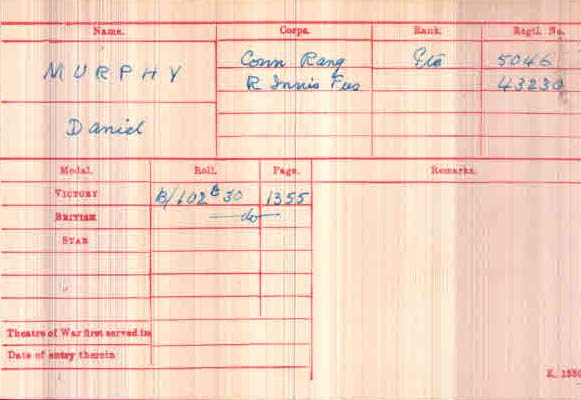 Name. Corps. Rank. Regtl. No.
MURPHY Conn Rang Pte 5046
R Innis Fus 43230
Daniel
Medal. Roll. Page. Remarks.
VICTORY B/102 B 30 1355
BRITISH do
STAR
Theatre of War first served in
Date of entry therein
K. 1380